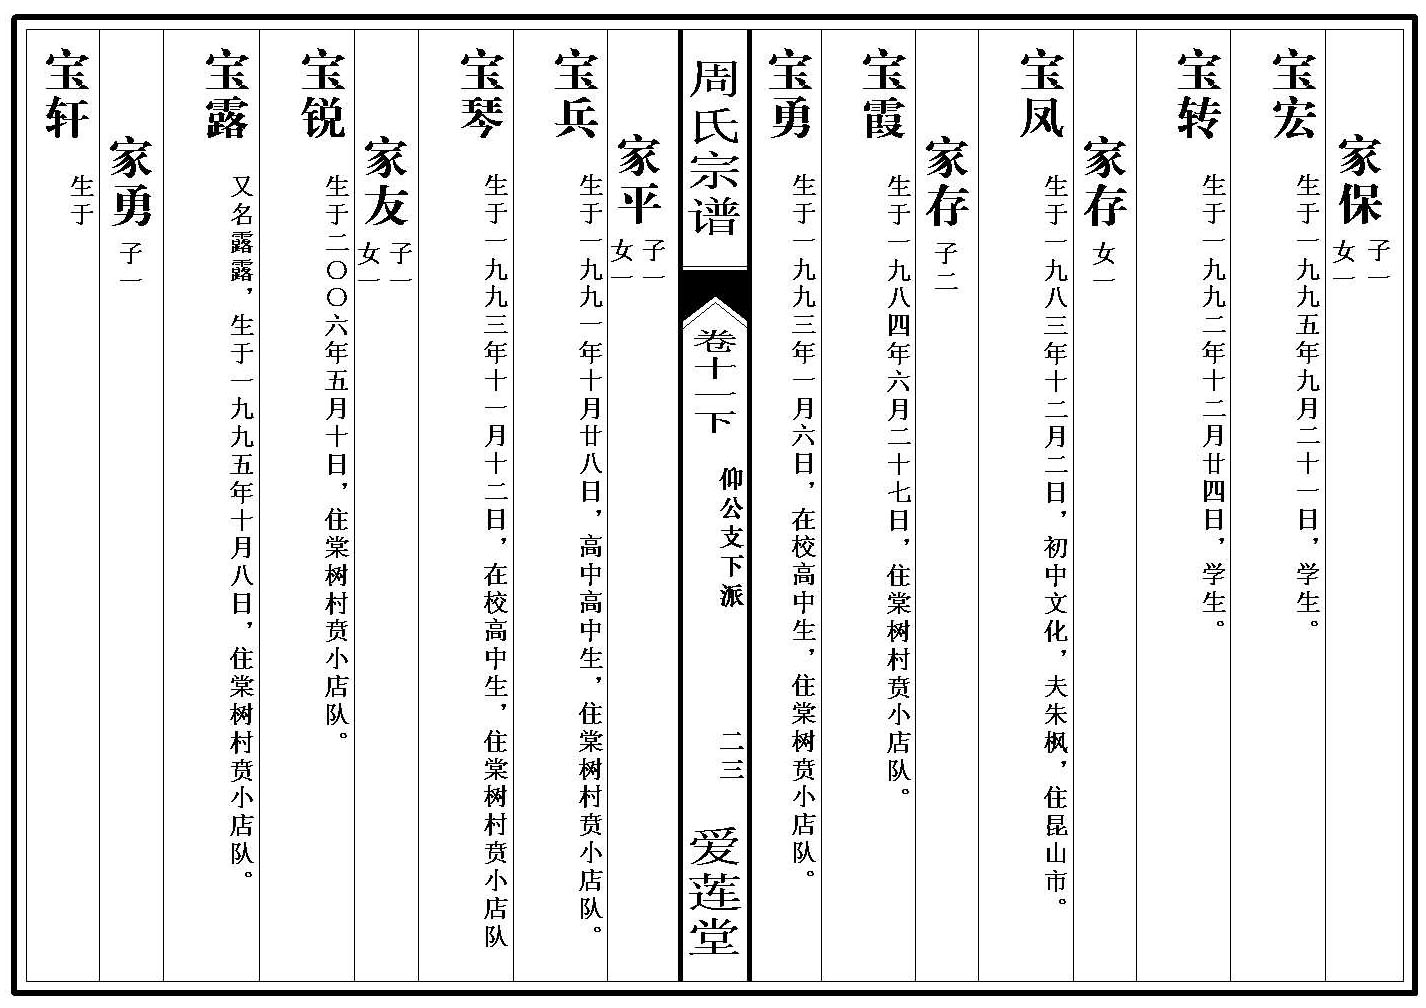 家保 子一 女一
宝宏 生于一九九五年九月二十一日，学生。
宝转 生于一九九二年十二月廿四日，学生。
家存 女一
宝凤 生于一九八三年十二月二日，初中文化，夫朱枫，住昆山市。
家存 子二
宝霞 生于一九八四年六月二十七日，住棠树村贲小店队。
宝勇 生于一九九三年一月六日，在校高中生，住棠树贲小店队。
周氏宗谱
卷十二下
仰公支下派
二三
爱莲堂
家平 子一 女一
宝兵 生于一九九一年十月廿八日，高中高中生，住棠树村贲小店队。
宝琴 生于一九九三年十一月十二日，在校高中生，住棠树村贲小店队
家友 子一 女一
宝锐 生于二〇〇六年五月十日，住棠树村贲小店队。
宝露 又名露露，生于一九九五年十月八日，住棠树村贲小店队。
家勇 子一
宝轩 生于